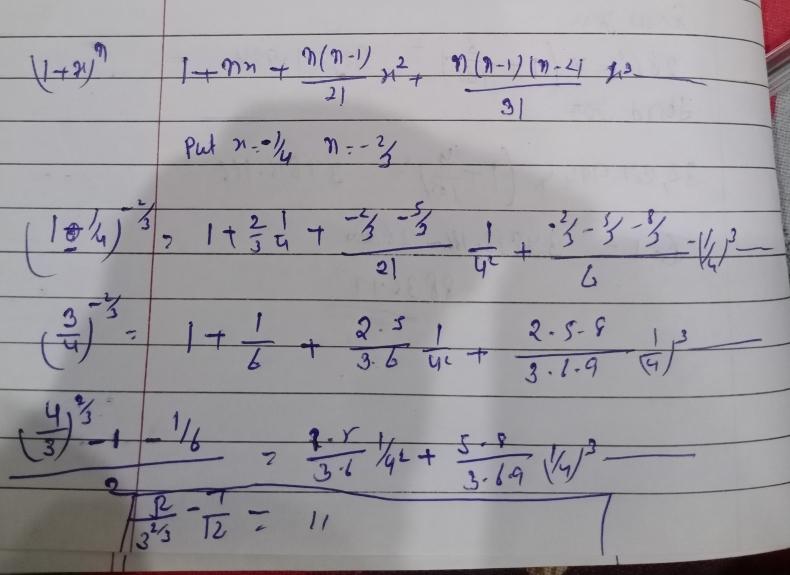 (1+x)^n   1 + nx + n(n-1)/2! x² + n(n-1)(n-2)/3! x³ ——
Put x = -1/4   n = -2/3
(1 - 1/4)^(-2/3) = 1 + 2/3 1/4 + (-2/3 -5/3)/2! 1/4² + (-2/3 -5/3 -8/3)/6 -(1/4)³ ——
(3/4)^(-2/3) = 1 + 1/6 + 2·5/3·6 1/4² + 2·5·8/3·6·9 (1/4)³ ——
((4/3)^(2/3) - 1 - 1/6)/2 = 5/3·6 1/4² + 5·8/3·6·9 (1/4)³ ——
/3^(2/3) - 7/12 = 11